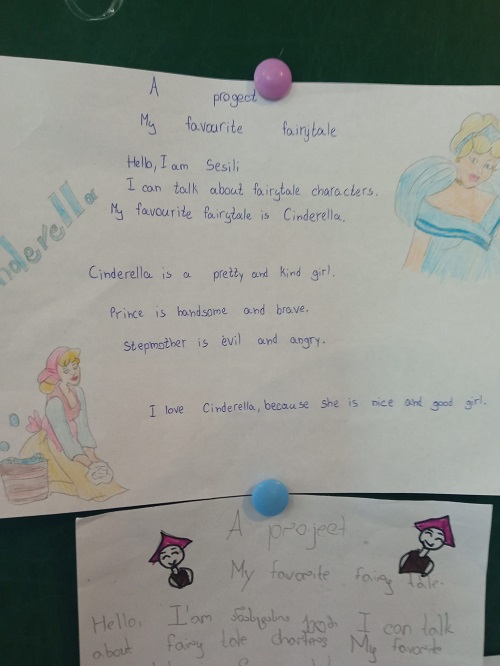 A progect
My favourite fairytale
Hello, I am Sesili
I can talk about fairytale characters.
My favourite fairytale is Cinderella.
nderella
Cinderella is a pretty and kind girl.
Prince is handsome and brave.
stepmother is evil and angry.
I love Cinderella, because she is nice and good girl.
A project.
My favorite fairy tale.
Hello, I'am I can talk
about fairy tale My favorite